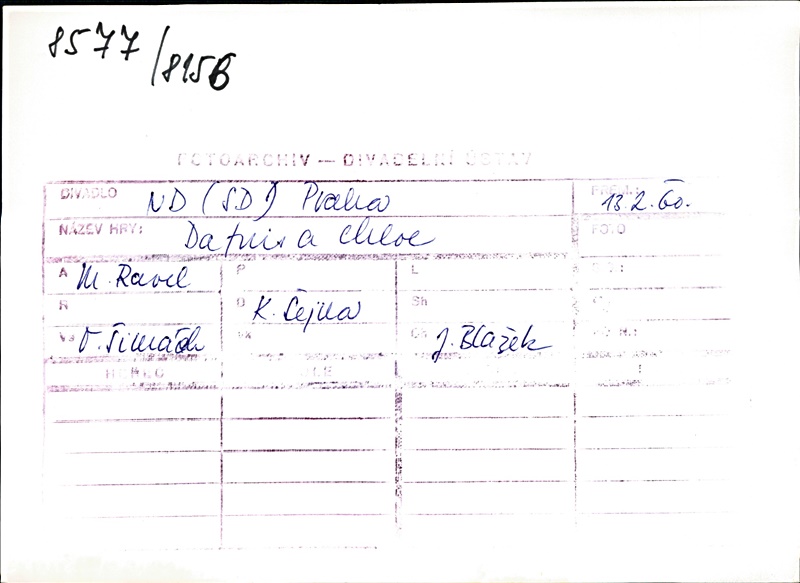 8577/8156
FOTOARCHIV — DIVADELNÍ ÚSTAV
DIVADLO ND (SD) Praha PREM.: 13.2.60.
NÁZEV HRY: Dafnis a Chloe FOTO
A M. Ravel P L
R D K. Čejka Sh
V. Šimáček Ch J. Blažek
HEREC ROLE